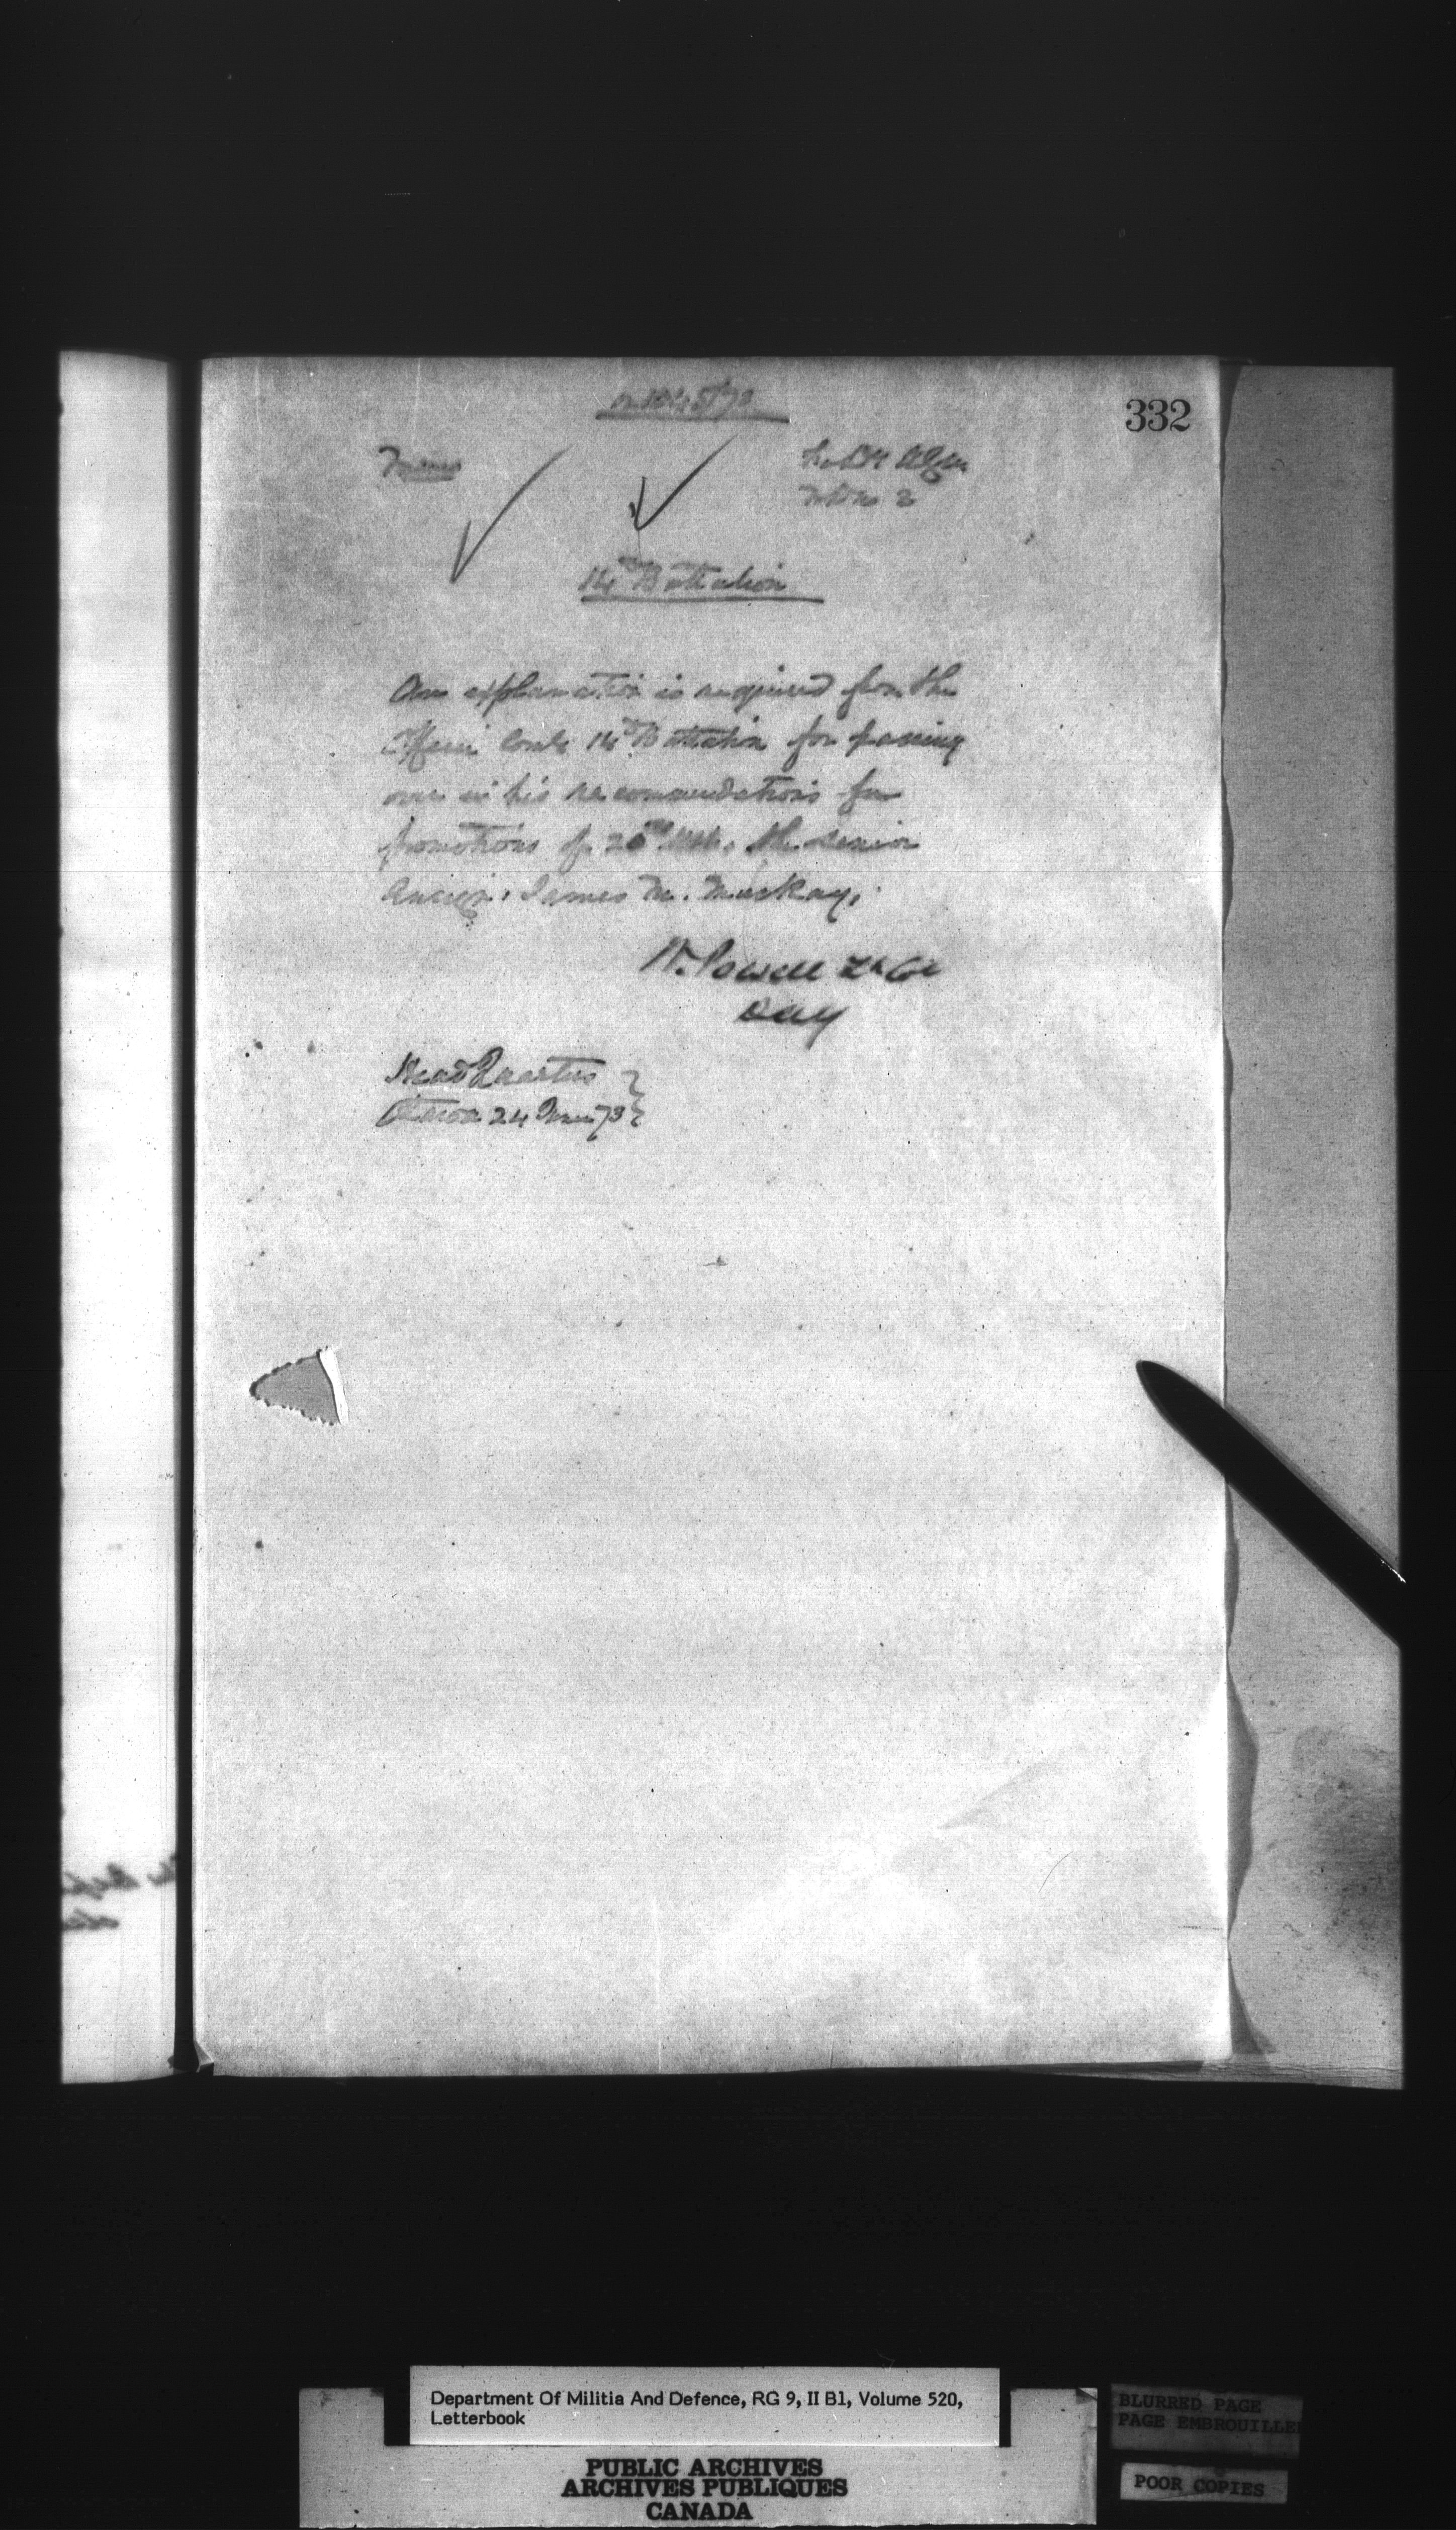 332
Memo
14th Battalion
An explanation is required from the
Officer Comdg 14th Battalion for passing
over in his recommendations for
promotions of 20th the senior
Ensign, James M. MacKay.
W. Powell Lt Col
DAG
Head Quarters
Ottawa 24 73
Department Of Militia And Defence, RG 9, II B1, Volume 520,
Letterbook
PUBLIC ARCHIVES
ARCHIVES PUBLIQUES
CANADA
BLURRED PAGE
PAGE EMBROUILLE
POOR COPIES